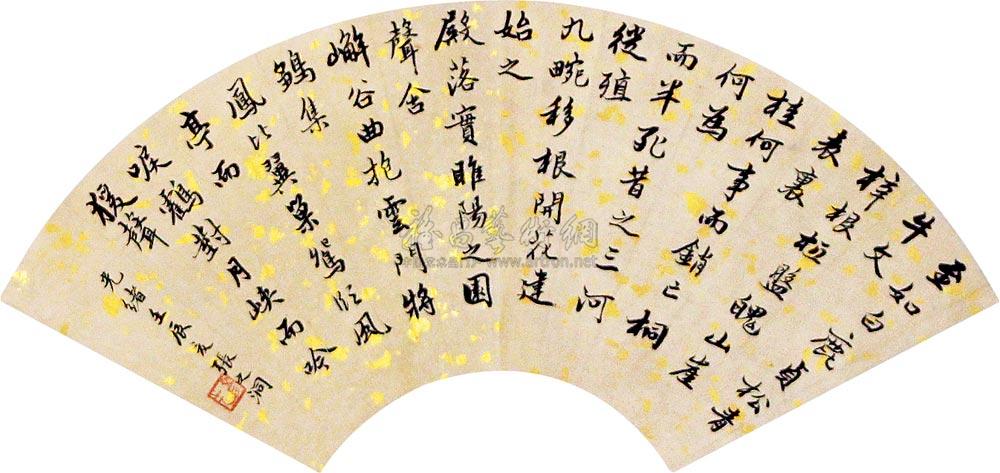 至如白鹿貞松青
牛文
梓根柢盤魄山崖
表裏
桂何事而銷亡桐
何為
而半死昔之三河
徙殖
九畹移根開花建
始之
殿落實睢陽之園
聲含
嶰谷曲抱雲門將
鶵集
鳳比翼巢鴛臨風
亭而
唳鶴對月峽而吟
猨聲
光緒壬辰夏張之洞